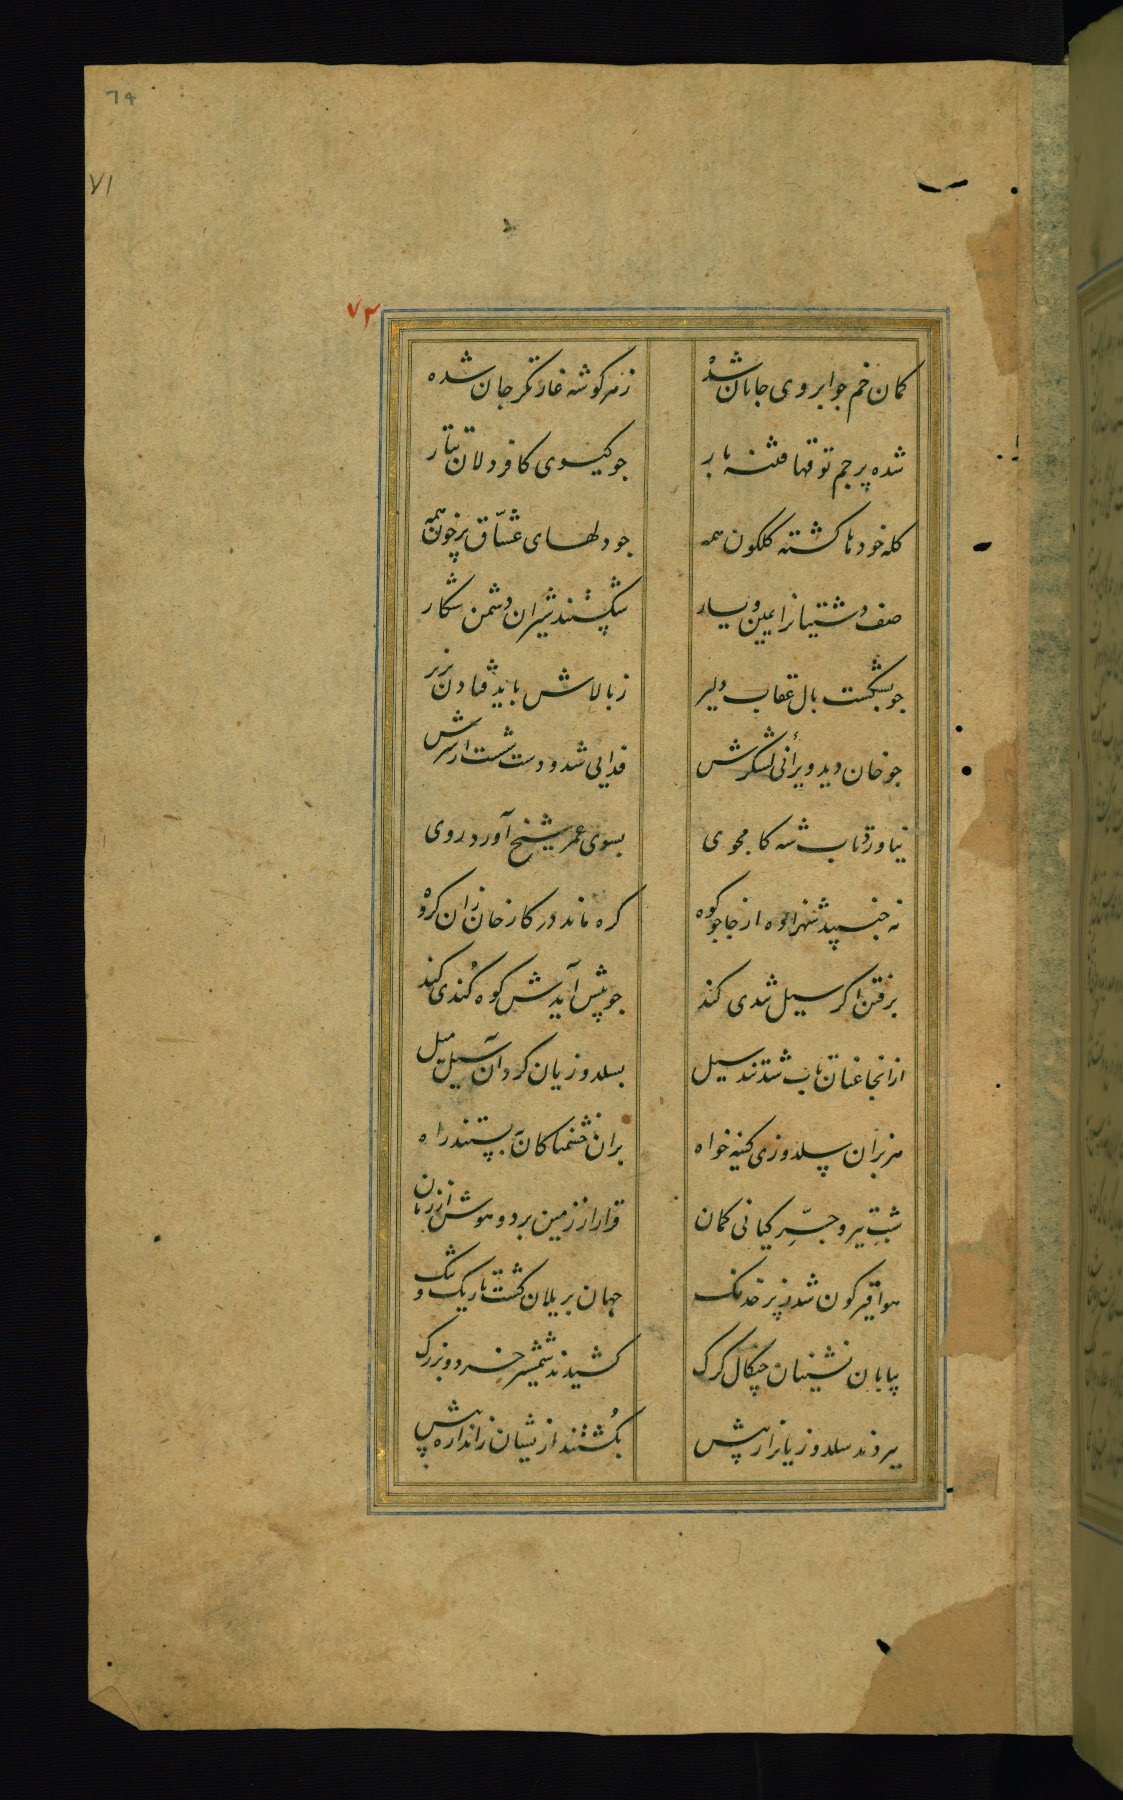 ٦٩
٧١
٧٢
کمان خم جو ابروی جانان شده زهر کوشه غارتکر جان شده
شده پرجم توقها فتنه بار جو کیسوی کافردلان تتار
کله خودها کشته کلکون همه جو دلهای عشّاق پرخون همه
صف دشتیانرا یمین و یسار شکستند شیران دشمن شکار
جو بشکست بال عقاب دلیر ز بالاش باید فتادن بزیر
جو خان دید ویرانی لشکرش فدایی شد و دست شست از سرش
نیاورد تاب شه کامجوی بسوی عمر شیخ آورد روی
نه جنبید شهزاده از جا جو کوه کره ماند در کار خان زان کروه
برفتن اکر سیل تندی کند جو پیش آیدش کوه کندی کند
از انجا عنان تاب شد تند سیل بسلدوزیان کرد آن سیل میل
هزبران سلدوزی کینه خواه بران خشمناکان ببستند راه
شبت تیر و جرّ کیانی کمان قرار از زمین برد و هوش از زمان
هوا قیرکون شد ز پر خدنک جهان بر یلان کشت تاریک و تنک
بیابان نشینان جنکال کرک کشیدند شمشیر خرد و بزرک
بردند سلدوزیانرا ز پیش بکشتند ازیشان ز اندازه بیش